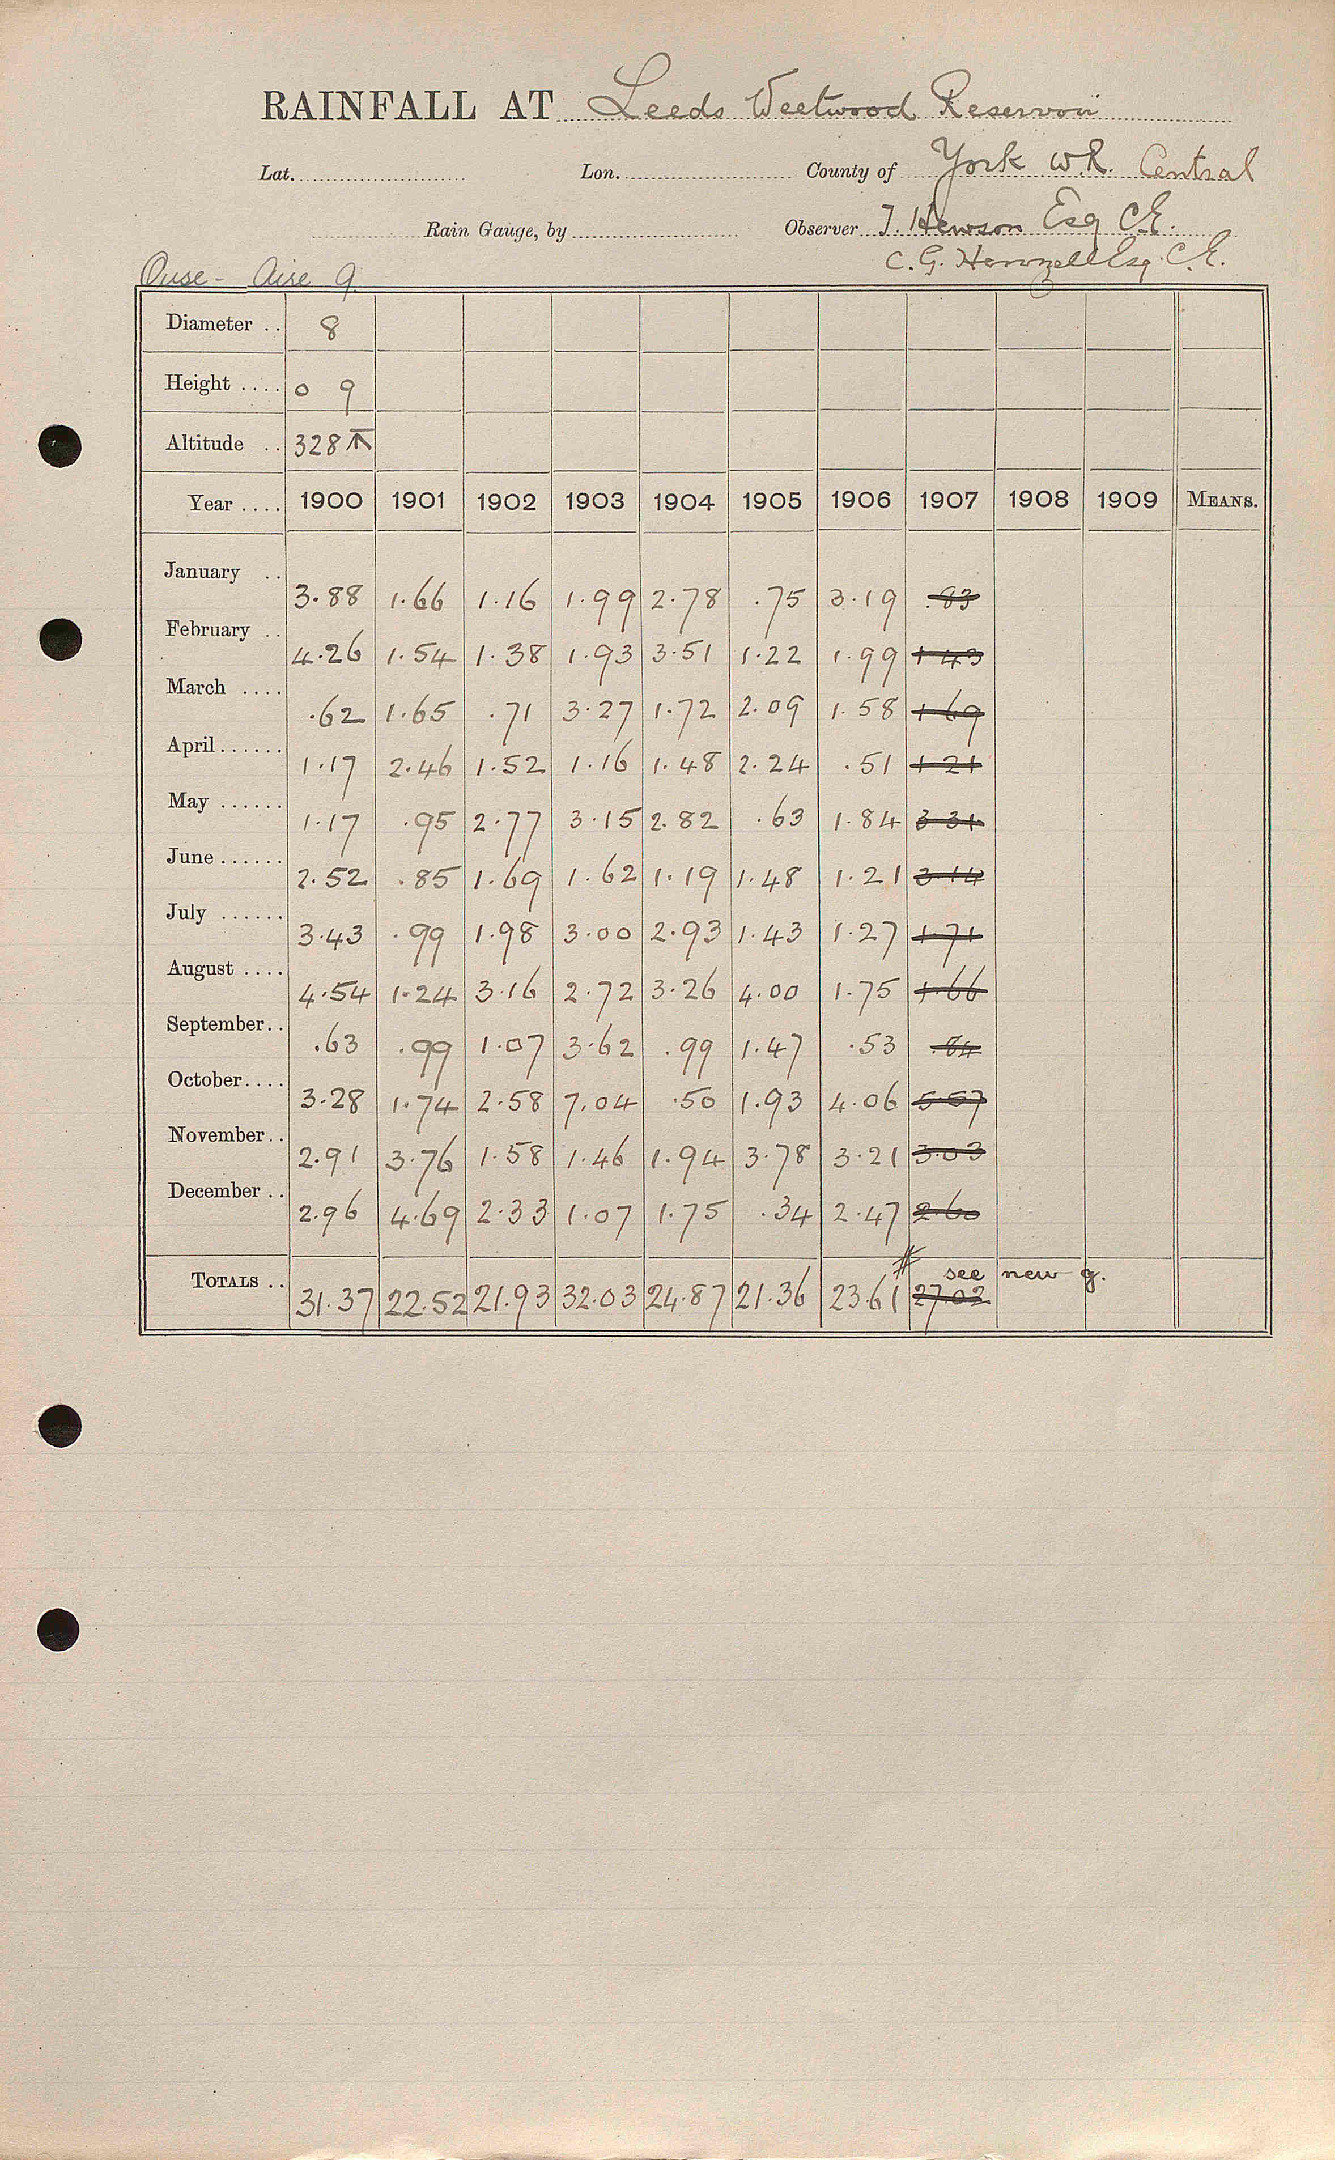 RAINFALL AT Leeds Weetwood Reservoir
Lat. Lon. County of York W.R. Central
Rain Gauge, by Observer T. Hewson Esq C.E.
C. G. Henzell Esq. C.E.
Ouse - Aire 9
Diameter .. 8
Height .... 0 9
Altitude .. 328
Year .... 1900 1901 1902 1903 1904 1905 1906 1907 1908 1909 MEANS.
January .. 3.88 1.66 1.16 1.99 2.78 .75 3.19 .83
February .. 4.26 1.54 1.38 1.93 3.51 1.22 1.99 1.43
March .... .62 1.65 .71 3.27 1.72 2.09 1.58 1.69
April ...... 1.17 2.46 1.52 1.16 1.48 2.24 .51 1.21
May ...... 1.17 .95 2.77 3.15 2.82 .63 1.84 3.31
June ...... 2.52 .85 1.69 1.62 1.19 1.48 1.21 3.14
July ...... 3.43 .99 1.98 3.00 2.93 1.43 1.27 1.71
August .... 4.54 1.24 3.16 2.72 3.26 4.00 1.75 1.66
September.. .63 .99 1.07 3.62 .99 1.47 .53 .84
October.... 3.28 1.74 2.58 7.04 .50 1.93 4.06 5.57
November.. 2.91 3.76 1.58 1.46 1.94 3.78 3.21 3.03
December .. 2.96 4.69 2.33 1.07 1.75 .34 2.47 2.60
see new g.
TOTALS .. 31.37 22.52 21.93 32.03 24.87 21.36 23.61 27.02